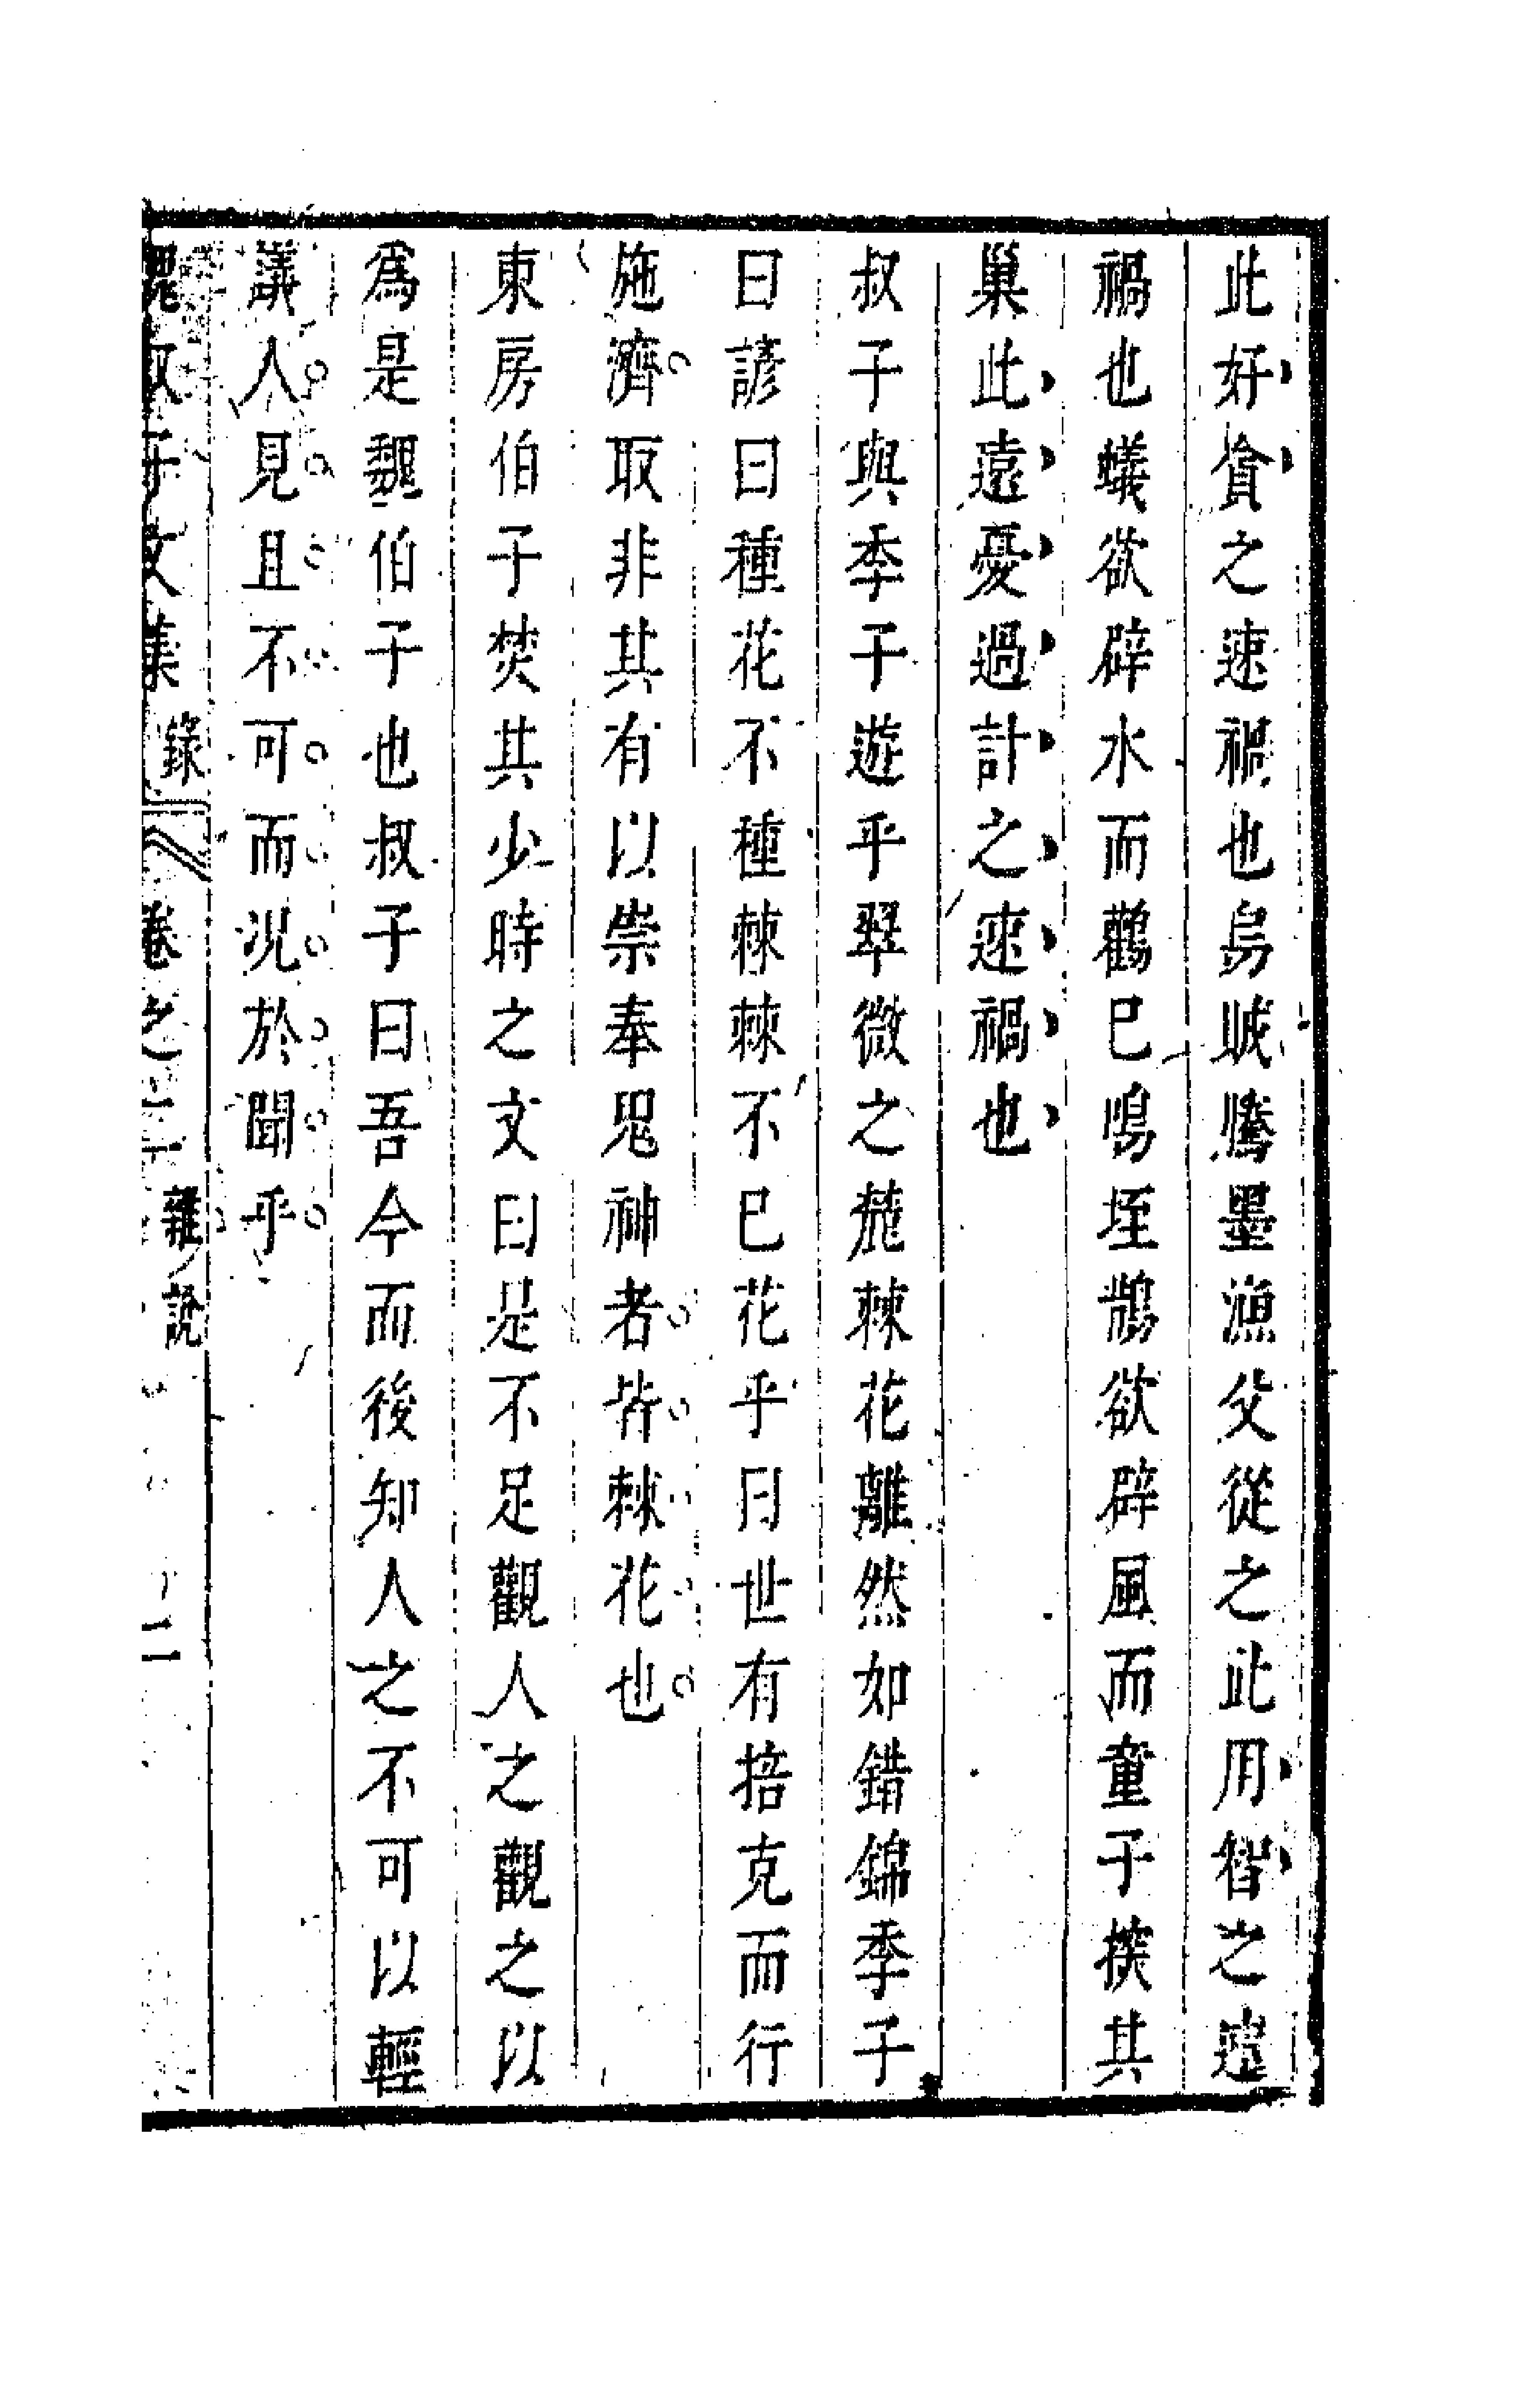 此好貪之速禍也烏賊騰墨漁父從之此用智之速
禍也蟻欲辟水而鸛已鳴垤鵲欲辟風而童子探其
巢此遠憂過計之速禍也
叔子與季子遊乎翠微之麓棘花離然如錯錦季子
曰諺曰種花不種棘棘不已花乎曰世有掊克而行
施濟取非其有以崇奉鬼神者皆棘花也
東房伯子焚其少時之文曰是不足觀人之觀之以
為是魏伯子也叔子曰吾今而後知人之不可以輕
議人見且不可而況於聞乎
魏叔子文集 錄 卷之二 雜說 二